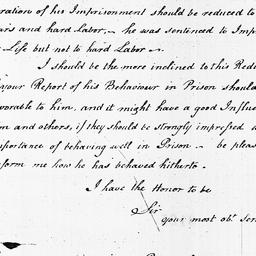 ration of his Imprisonment should be reduced to
ars and hard Labor; – he was sentenced to Imp
Life but not to hard Labor –.
I should be the more inclined to this Redu
your Report of his Behaviour in Prison shoul
vorable to him, and it might have a good Influe
m and others, if they should be strongly impressed w
mportance of behaving well in Prison – be pleas
form me how he has behaved hitherto.
I have the Honor to be
Sir
your most obt. ser